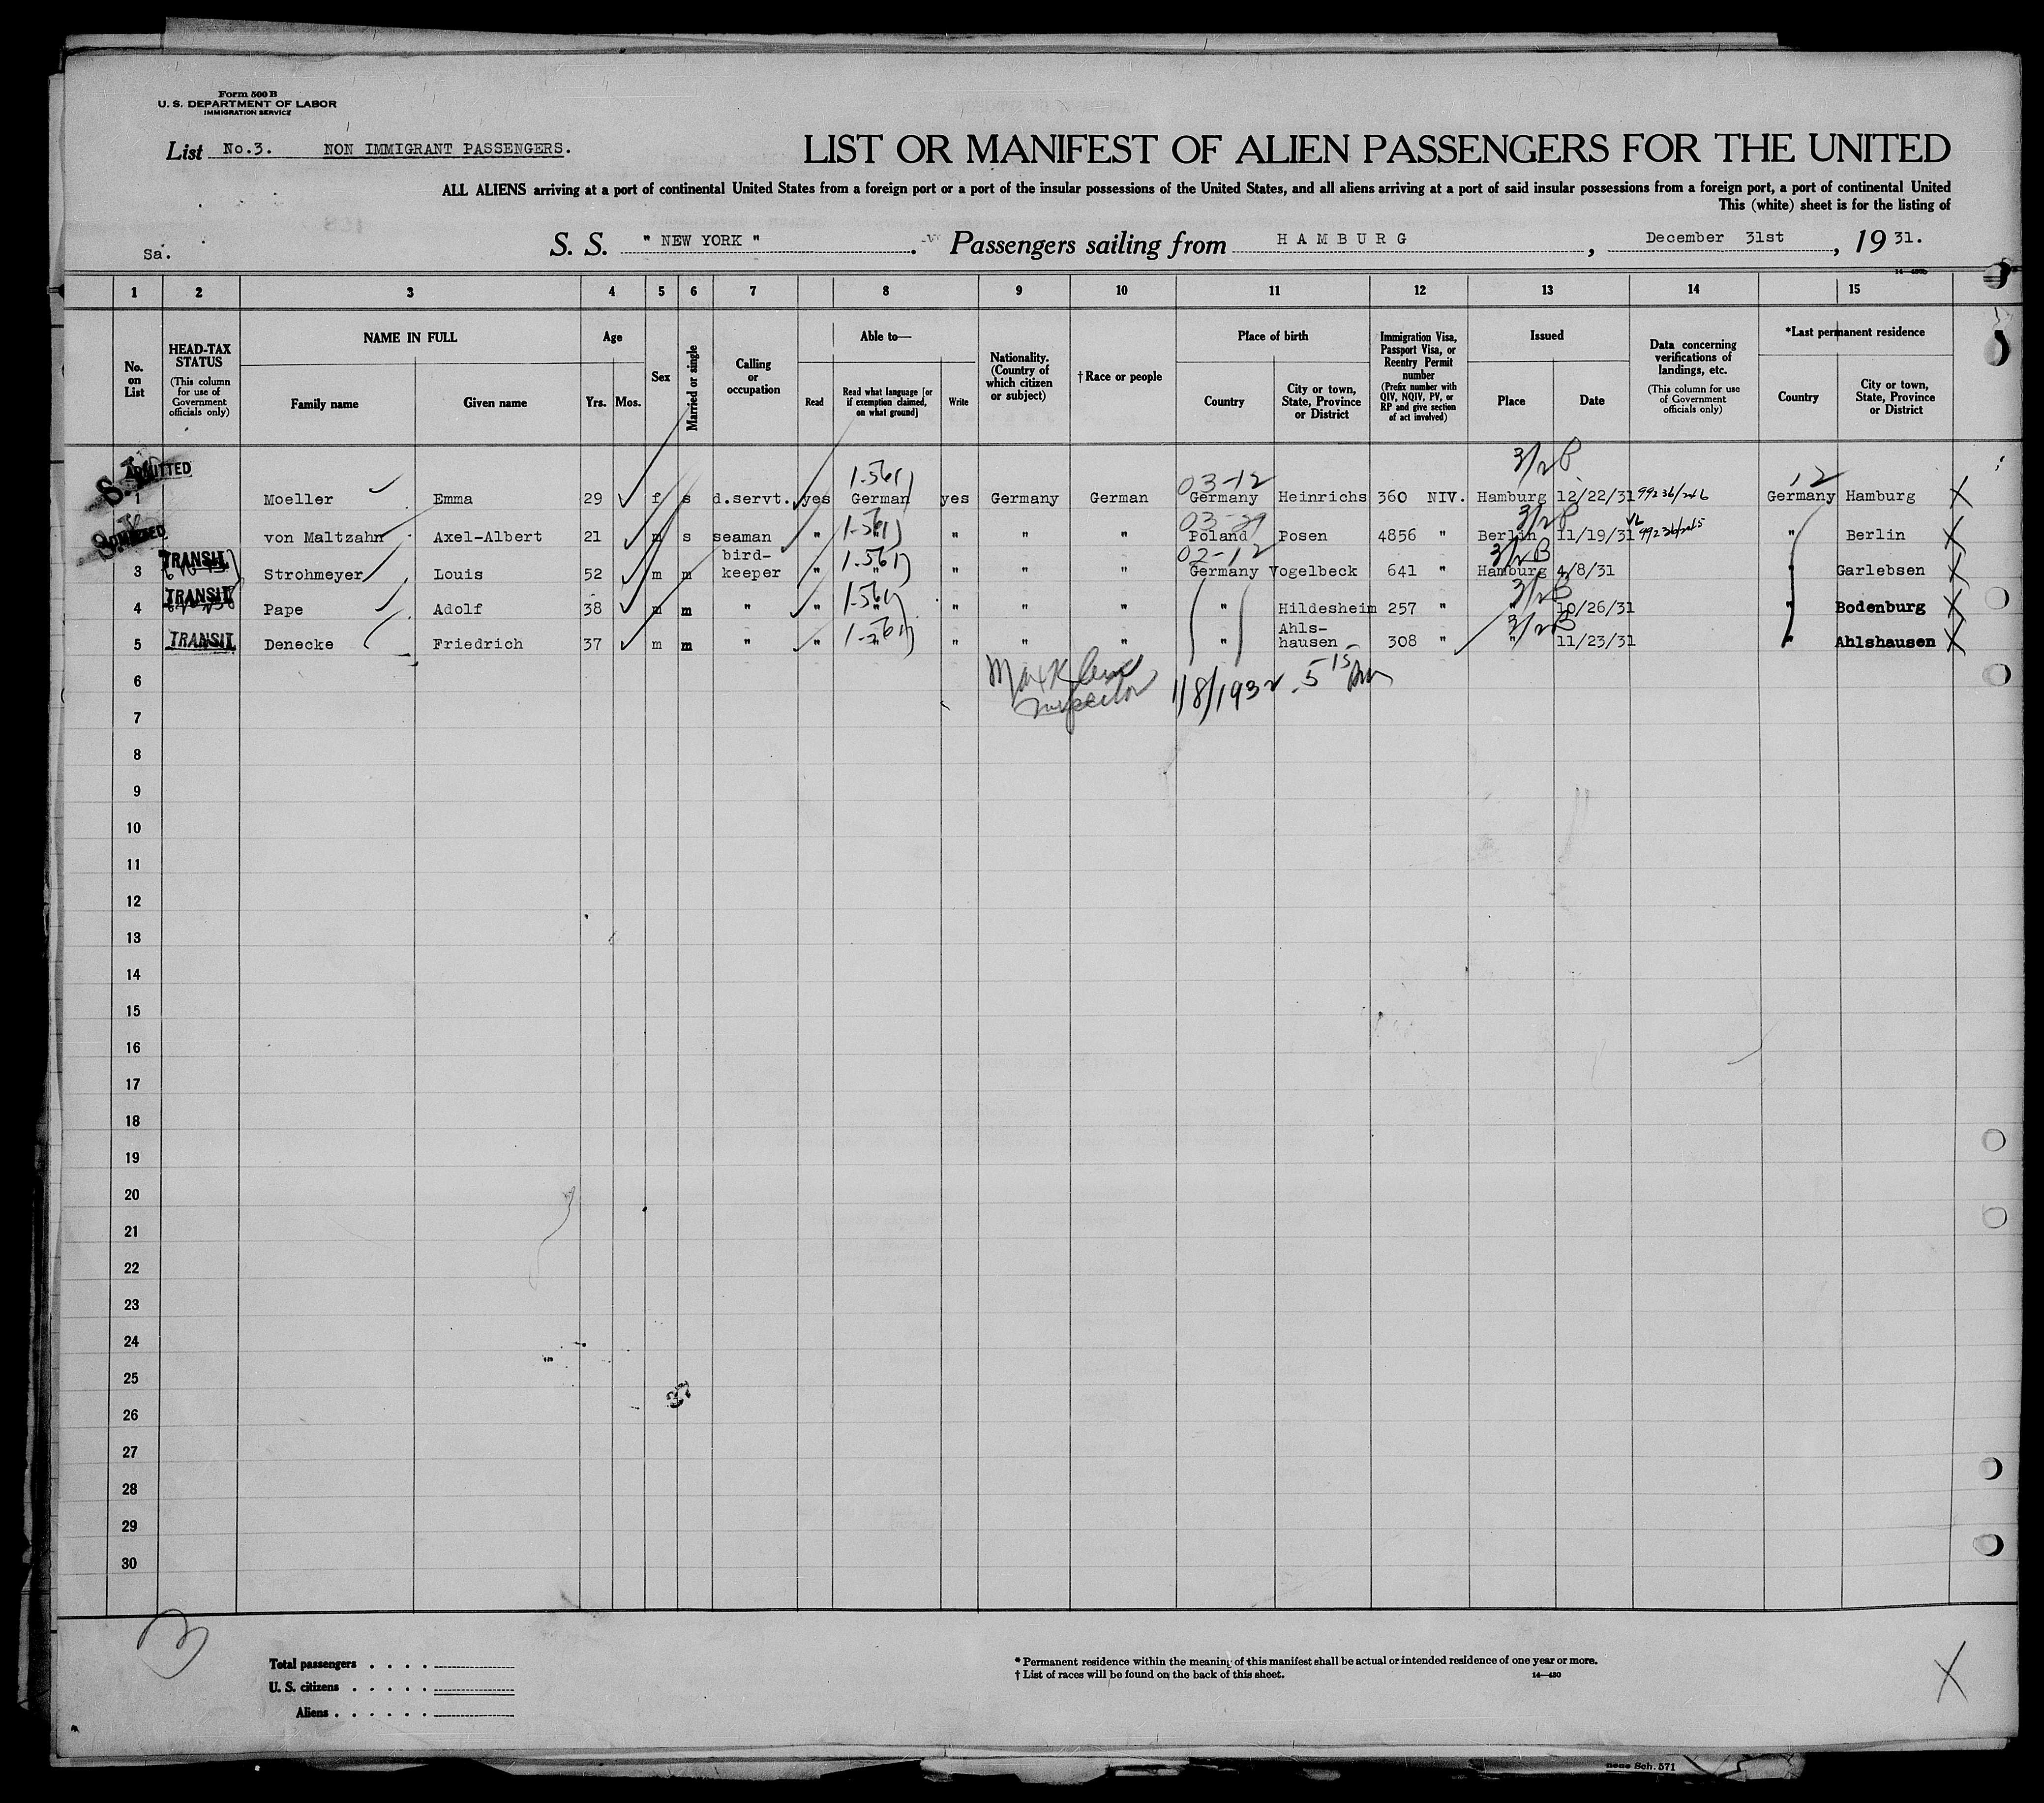 Form 500 B
U. S. DEPARTMENT OF LABOR
IMMIGRATION SERVICE
List No.3. NON IMMIGRANT PASSENGERS.
LIST OR MANIFEST OF ALIEN PASSENGERS FOR THE UNITED
ALL ALIENS arriving at a port of continental United States from a foreign port or a port of the insular possessions of the United States, and all aliens arriving at a port of said insular possessions from a foreign port, a port of continental United
This (white) sheet is for the listing of
Sa. S. S. " NEW YORK " . Passengers sailing from HAMBURG , December 31st , 19 31.
14-480b
1 2 3 4 5 6 7 8 9 10 11 12 13 14 15
No. on List
HEAD-TAX STATUS (This column for use of Government officials only)
NAME IN FULL
Family name
Given name
Age
Yrs. Mos.
Sex
Married or single
Calling or occupation
Able to—
Read
Read what language [or if exemption claimed, on what ground]
Write
Nationality. (Country of which citizen or subject)
† Race or people
Place of birth
Country
City or town, State, Province or District
Immigration Visa, Passport Visa, or Reentry Permit number (Prefix number with QIV, NQIV, PV, or RP and give section of act involved)
Issued
Place
Date
Data concerning verifications of landings, etc. (This column for use of Government officials only)
*Last permanent residence
Country
City or town, State, Province or District
ADMITTED
3/2 B
1-561) 03-12 12
1 Moeller Emma 29 f s d.servt. yes German yes Germany German Germany Heinrichs 360 NIV. Hamburg 12/22/31 Germany Hamburg X
1-561) 03-29 3/2B
von Maltzahn Axel-Albert 21 m s seaman " " " " " Poland Posen 4856 " Berlin 11/19/31 " Berlin X
TRANSIT bird- 1-561) 02-12 3/2B
3 Strohmeyer Louis 52 m m keeper " " " " " Germany Vogelbeck 641 " Hamburg 4/8/31 " Garlebsen X
TRANSIT 1-561) 3/2B
4 Pape Adolf 38 m m " " " " " " " Hildesheim 257 " " 10/26/31 " Bodenburg X
TRANSIT 1-561) Ahls- 3/2B
5 Denecke Friedrich 37 m m " " " " " " " hausen 308 " " 11/23/31 " Ahlshausen X
6 Inspector 1/8/1932
7
8
9
10
11
12
13
14
15
16
17
18
19
20
21
22
23
24
25
26
27
28
29
30
Total passengers . . . .
U. S. citizens . . . . .
Aliens . . . . . .
* Permanent residence within the meaning of this manifest shall be actual or intended residence of one year or more.
† List of races will be found on the back of this sheet. 14—480
X
Sch. 571